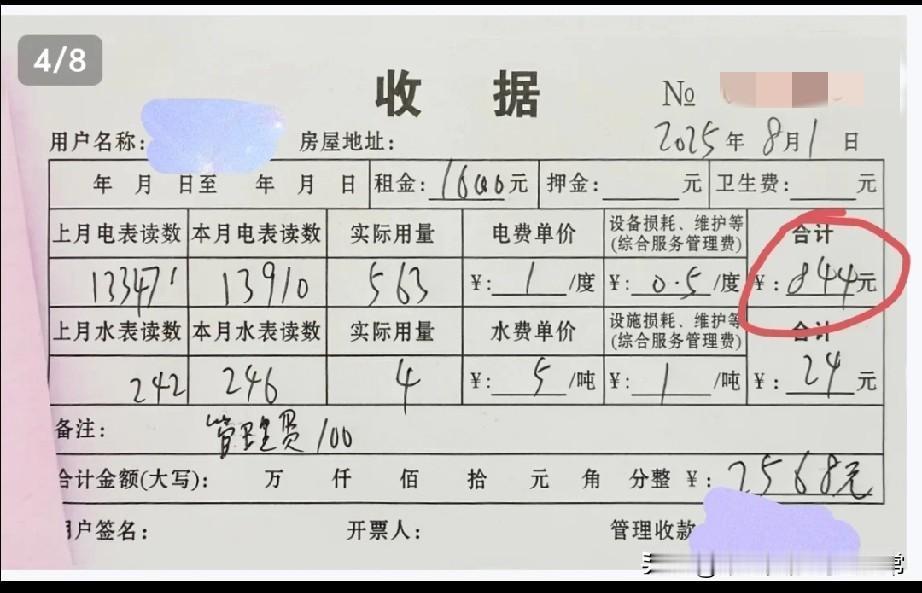 4/8
收 据 №
用户名称: 房屋地址: 2025年8月1日
年 月 日至 年 月 日 租金:1600元 押金: 元 卫生费: 元
上月电表读数 本月电表读数 实际用量 电费单价 设备损耗、维护等(综合服务管理费) 合计
13347 13910 563 ¥:1/度 ¥:0.5/度 ¥:844元
上月水表读数 本月水表读数 实际用量 水费单价 设施损耗、维护等(综合服务管理费) 合计
242 246 4 ¥:5/吨 ¥:1/吨 ¥:24元
备注: 管理费100
合计金额(大写): 万 仟 佰 拾 元 角 分整 ¥:2568元
用户签名: 开票人: 管理收款